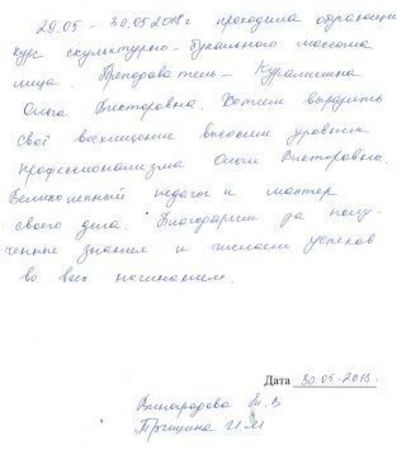 29.05 - 30.05 2018г проходила обучающий
курс скульптурно-буккального массажа
лица. Преподаватель -
Ольга Викторовна. Хотим выразить
своё восхищение высоким уровнем
профессионализма Ольги Викторовны.
Великолепный педагог и мастер
своего дела. Благодарим за полу-
ченные знания и желаем успехов
во всех начинаниях.
Дата 30.05.2018.
Виноградова
И.М